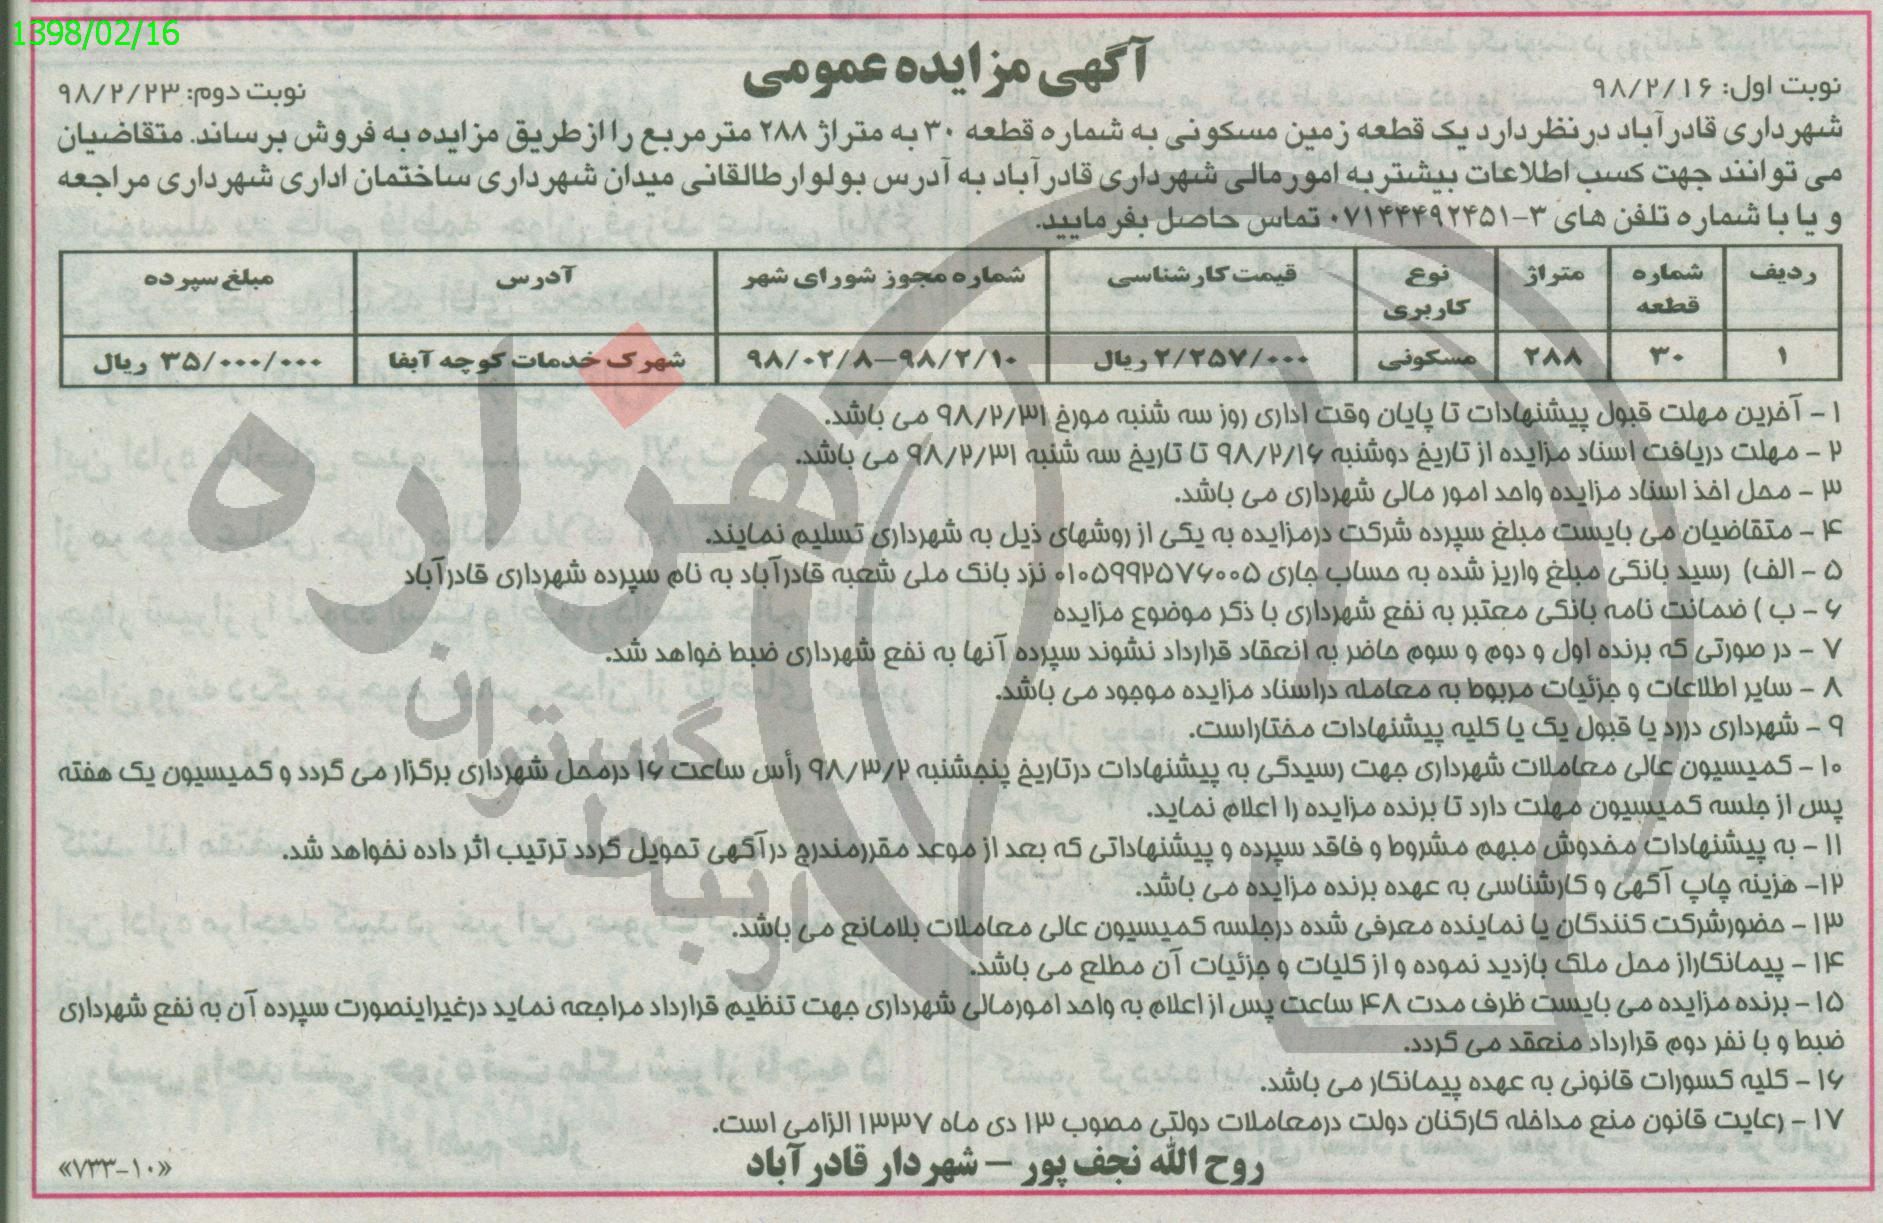 1398/02/16
آگهی مزایده عمومی
نوبت اول: ۹۸/۲/۱۶
نوبت دوم: ۹۸/۲/۲۳
شهرداری قادرآباد درنظردارد یک قطعه زمین مسکونی به شماره قطعه ۳۰ به متراژ ۲۸۸ مترمربع را ازطریق مزایده به فروش برساند. متقاضیان
می توانند جهت کسب اطلاعات بیشتربه امورمالی شهرداری قادرآباد به آدرس بولوارطالقانی میدان شهرداری ساختمان اداری شهرداری مراجعه
و یا با شماره تلفن های ۳-۰۷۱۴۴۴۹۲۴۵۱ تماس حاصل بفرمایید.
ردیف شماره قطعه متراژ نوع کاربری قیمت کارشناسی شماره مجوز شورای شهر آدرس مبلغ سپرده
۱ ۳۰ ۲۸۸ مسکونی ۲/۲۵۷/۰۰۰ ریال ۹۸/۲/۱۰–۹۸/۰۲/۸ شهرک خدمات کوچه آبفا ۳۵/۰۰۰/۰۰۰ ریال
۱ - آخرین مهلت قبول پیشنهادات تا پایان وقت اداری روز سه شنبه مورخ ۹۸/۲/۳۱ می باشد.
۲ - مهلت دریافت اسناد مزایده از تاریخ دوشنبه ۹۸/۲/۱۶ تا تاریخ سه شنبه ۹۸/۲/۳۱ می باشد.
۳ - محل اخذ اسناد مزایده واحد امور مالی شهرداری می باشد.
۴ - متقاضیان می بایست مبلغ سپرده شرکت درمزایده به یکی از روشهای ذیل به شهرداری تسلیم نمایند.
۵ - الف) رسید بانکی مبلغ واریز شده به حساب جاری ۰۱۰۵۹۹۲۵۷۶۰۰۵ نزد بانک ملی شعبه قادرآباد به نام سپرده شهرداری قادرآباد
۶ - ب ) ضمانت نامه بانکی معتبر به نفع شهرداری با ذکر موضوع مزایده
۷ - در صورتی که برنده اول و دوم و سوم حاضر به انعقاد قرارداد نشوند سپرده آنها به نفع شهرداری ضبط خواهد شد.
۸ - سایر اطلاعات و جزئیات مربوط به معامله دراسناد مزایده موجود می باشد.
۹ - شهرداری دررد یا قبول یک یا کلیه پیشنهادات مختاراست.
۱۰ - کمیسیون عالی معاملات شهرداری جهت رسیدگی به پیشنهادات درتاریخ پنجشنبه ۹۸/۳/۲ رأس ساعت ۱۶ درمحل شهرداری برگزار می گردد و کمیسیون یک هفته
پس از جلسه کمیسیون مهلت دارد تا برنده مزایده را اعلام نماید.
۱۱ - به پیشنهادات مخدوش مبهم مشروط و فاقد سپرده و پیشنهاداتی که بعد از موعد مقررمندرج درآگهی تحویل گردد ترتیب اثر داده نخواهد شد.
۱۲- هزینه چاپ آگهی و کارشناسی به عهده برنده مزایده می باشد.
۱۳ - حضورشرکت کنندگان یا نماینده معرفی شده درجلسه کمیسیون عالی معاملات بلامانع می باشد.
۱۴ - پیمانکاراز محل ملک بازدید نموده و از کلیات و جزئیات آن مطلع می باشد.
۱۵ - برنده مزایده می بایست ظرف مدت ۴۸ ساعت پس از اعلام به واحد امورمالی شهرداری جهت تنظیم قرارداد مراجعه نماید درغیراینصورت سپرده آن به نفع شهرداری
ضبط و با نفر دوم قرارداد منعقد می گردد.
۱۶ - کلیه کسورات قانونی به عهده پیمانکار می باشد.
۱۷ - رعایت قانون منع مداخله کارکنان دولت درمعاملات دولتی مصوب ۱۳ دی ماه ۱۳۳۷ الزامی است.
روح الله نجف پور – شهردار قادرآباد
«۷۳۳-۱۰»
هزاره
ارتباط گستران